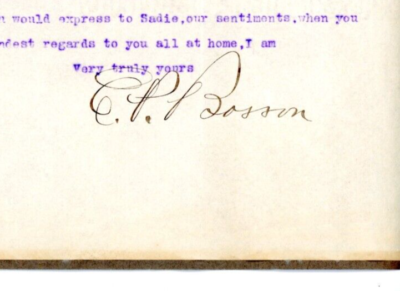 would express to Sadie,our sentiments,when you
regards to you all at home,I am
Very truly yours
E. P. Bosson